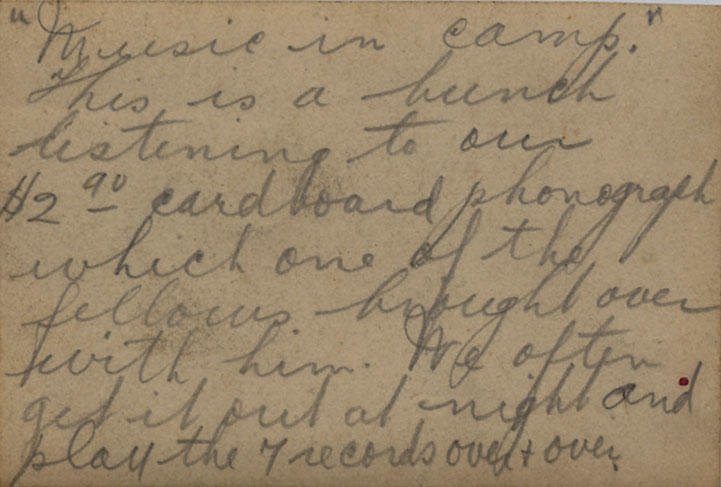 "Music in camp."
This is a bunch
listening to our
$2 90 cardboard phonograph
which one of the
fellows brought over
with him. We often
get it out at night and
play the 7 records over + over.